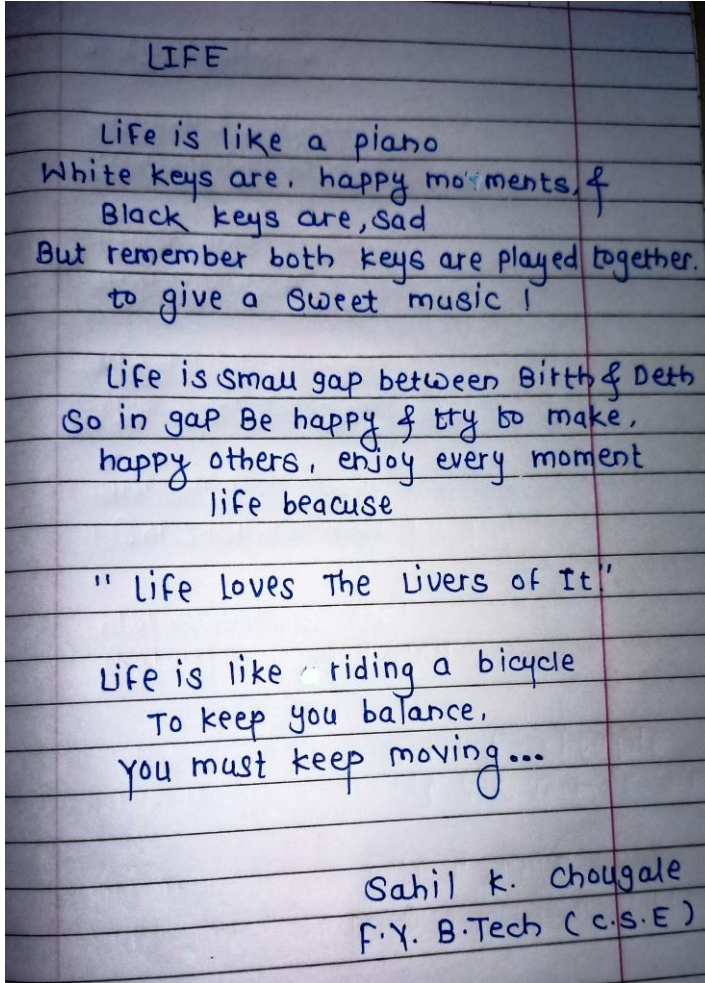 LIFE
Life is like a piano
White keys are, happy moments, &
Black keys are, sad
But remember both keys are played together.
to give a sweet music !
Life is small gap between Birth & Deth
So in gap Be happy & try to make,
happy others, enjoy every moment
life beacuse
" Life Loves The Livers of It."
Life is like riding a bicycle
To keep you balance,
You must keep moving...
Sahil K. Chougale
F.Y. B.Tech ( C.S.E )